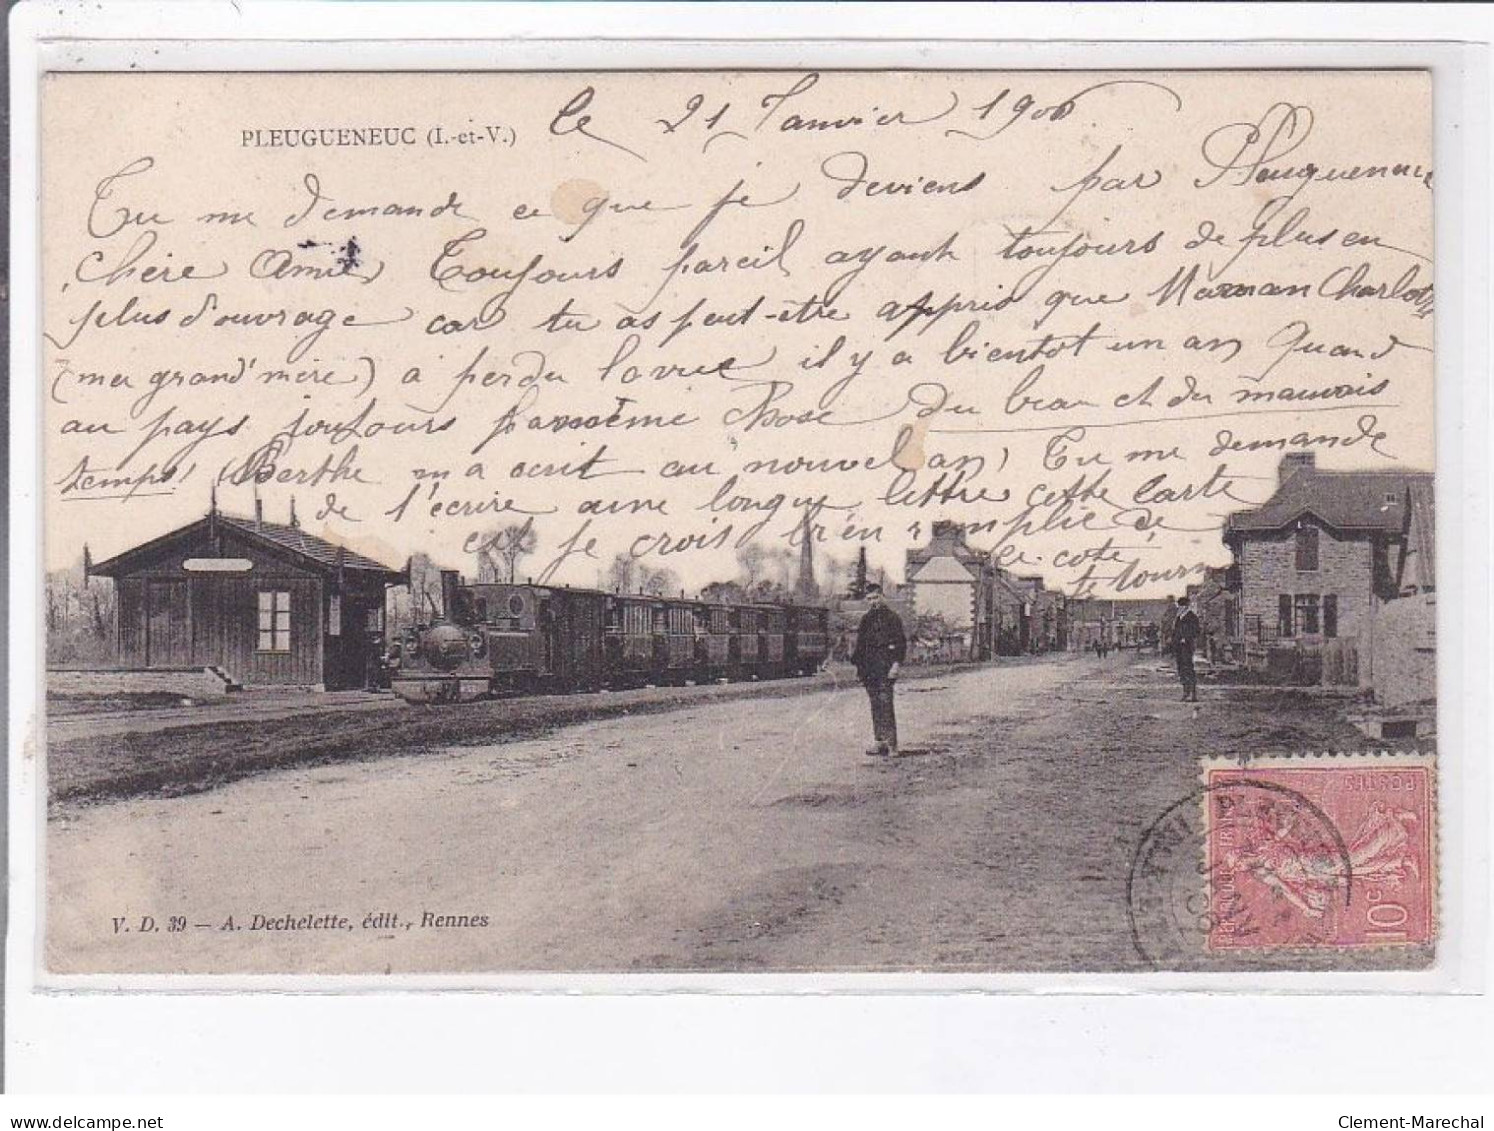 PLEUGUENEUC (I.-et-V.)
le 21 Janvier 1906
Tu me demande ce que je deviens par Pleugueneuc
Chère Amie Toujours pareil ayant toujours de plus en
plus d'ouvrage car tu as peut-être appris que Maman Charlotte
(ma grand'mère) a perdu la vue il y a bientôt un an Quand
au pays toujours la même chose du beau et du mauvais
temps, (Berthe m'a ecrit au nouvel an) Tu me demande
de t'écrire une longue lettre cette Carte
est je crois bien remplie de
ce coté,
te tourn
V. D. 39 — A. Dechelette, édit., Rennes
POSTES
10c
Clement-Marechal
delcampe.net